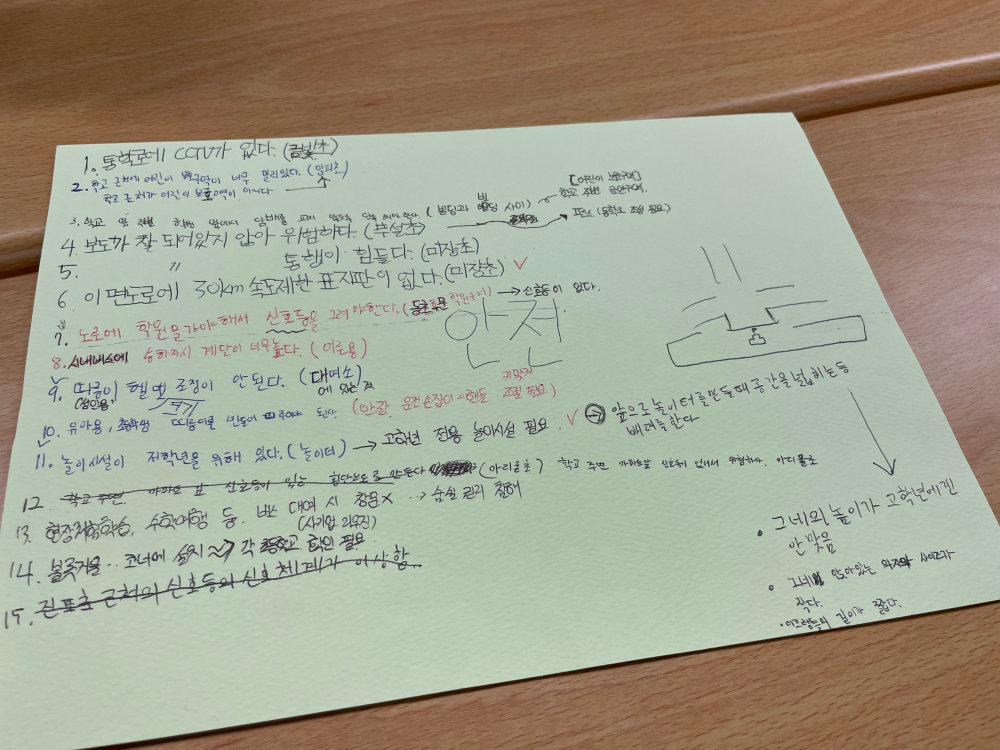 1. 통학로에 CCTV가 없다. (금빛초)
2. 학교 근처에 어린이 보호구역이 너무 멀리 있다. (임피초)
학교 근처가 어린이 보호구역이 아니다
[어린이 보호구역]
학교 주변 금연구역.
3. 학교 앞 주변 학원 앞에서 담배를 피지 않도록 단속 해야 한다 (빌딩과 빌딩 사이)
4. 보도가 잘 되어있지 않아 위험하다. (부설초) → 펜스 (동학교 조성 필요)
5. 〃 통행이 힘들다. (미장초)
6. 이면도로에 30km 속도제한 표지판이 없다. (미장초) ✓
7. 도로에 학원을 가야해서 신호등을 그려야한다. → 신호등이 없다.
안전
8. 시내버스에 승하차시 계단이 너무 높다. (이른용)
9. 따릉이 헬멧 조정이 안 된다. (대여소)
에 있는 것
(성인용)
크기
10. 유아용, 초등학생 따릉이를 만들어 주어야 된다. (안장, 운전손잡이=핸들 조절 필요)
키맞게
11. 놀이시설이 저학년을 위해 있다. (놀이터) → 고학년 전용 놀이시설 필요. ✓ → 앞으로 놀이터를 만들 때 공간을 넓히는 등
배려를 한다
12. 학교 주변 아파트 앞 신호등이 있는 횡단보도로 만든다 (아리울초) 학교 주변 아파트앞 신호등이 없어서 위험하다. 아리울초
13. 현장체험학습, 수학여행 등. 버스 대여 시 창문x ‥→ 숨쉴 권리 침해
(사기업 리무진)
14. 볼록거울 ‥ 코너에 설치 → 각 초등학교 확인 필요
15. 진포초 근처의 신호등의 신호 체계가 이상함.
• 그네의 높이가 고학년에겐
안 맞음
• 그네 앉아있는 의자의 사이즈가
작다.
• 미끄럼틀의 길이가 짧다.